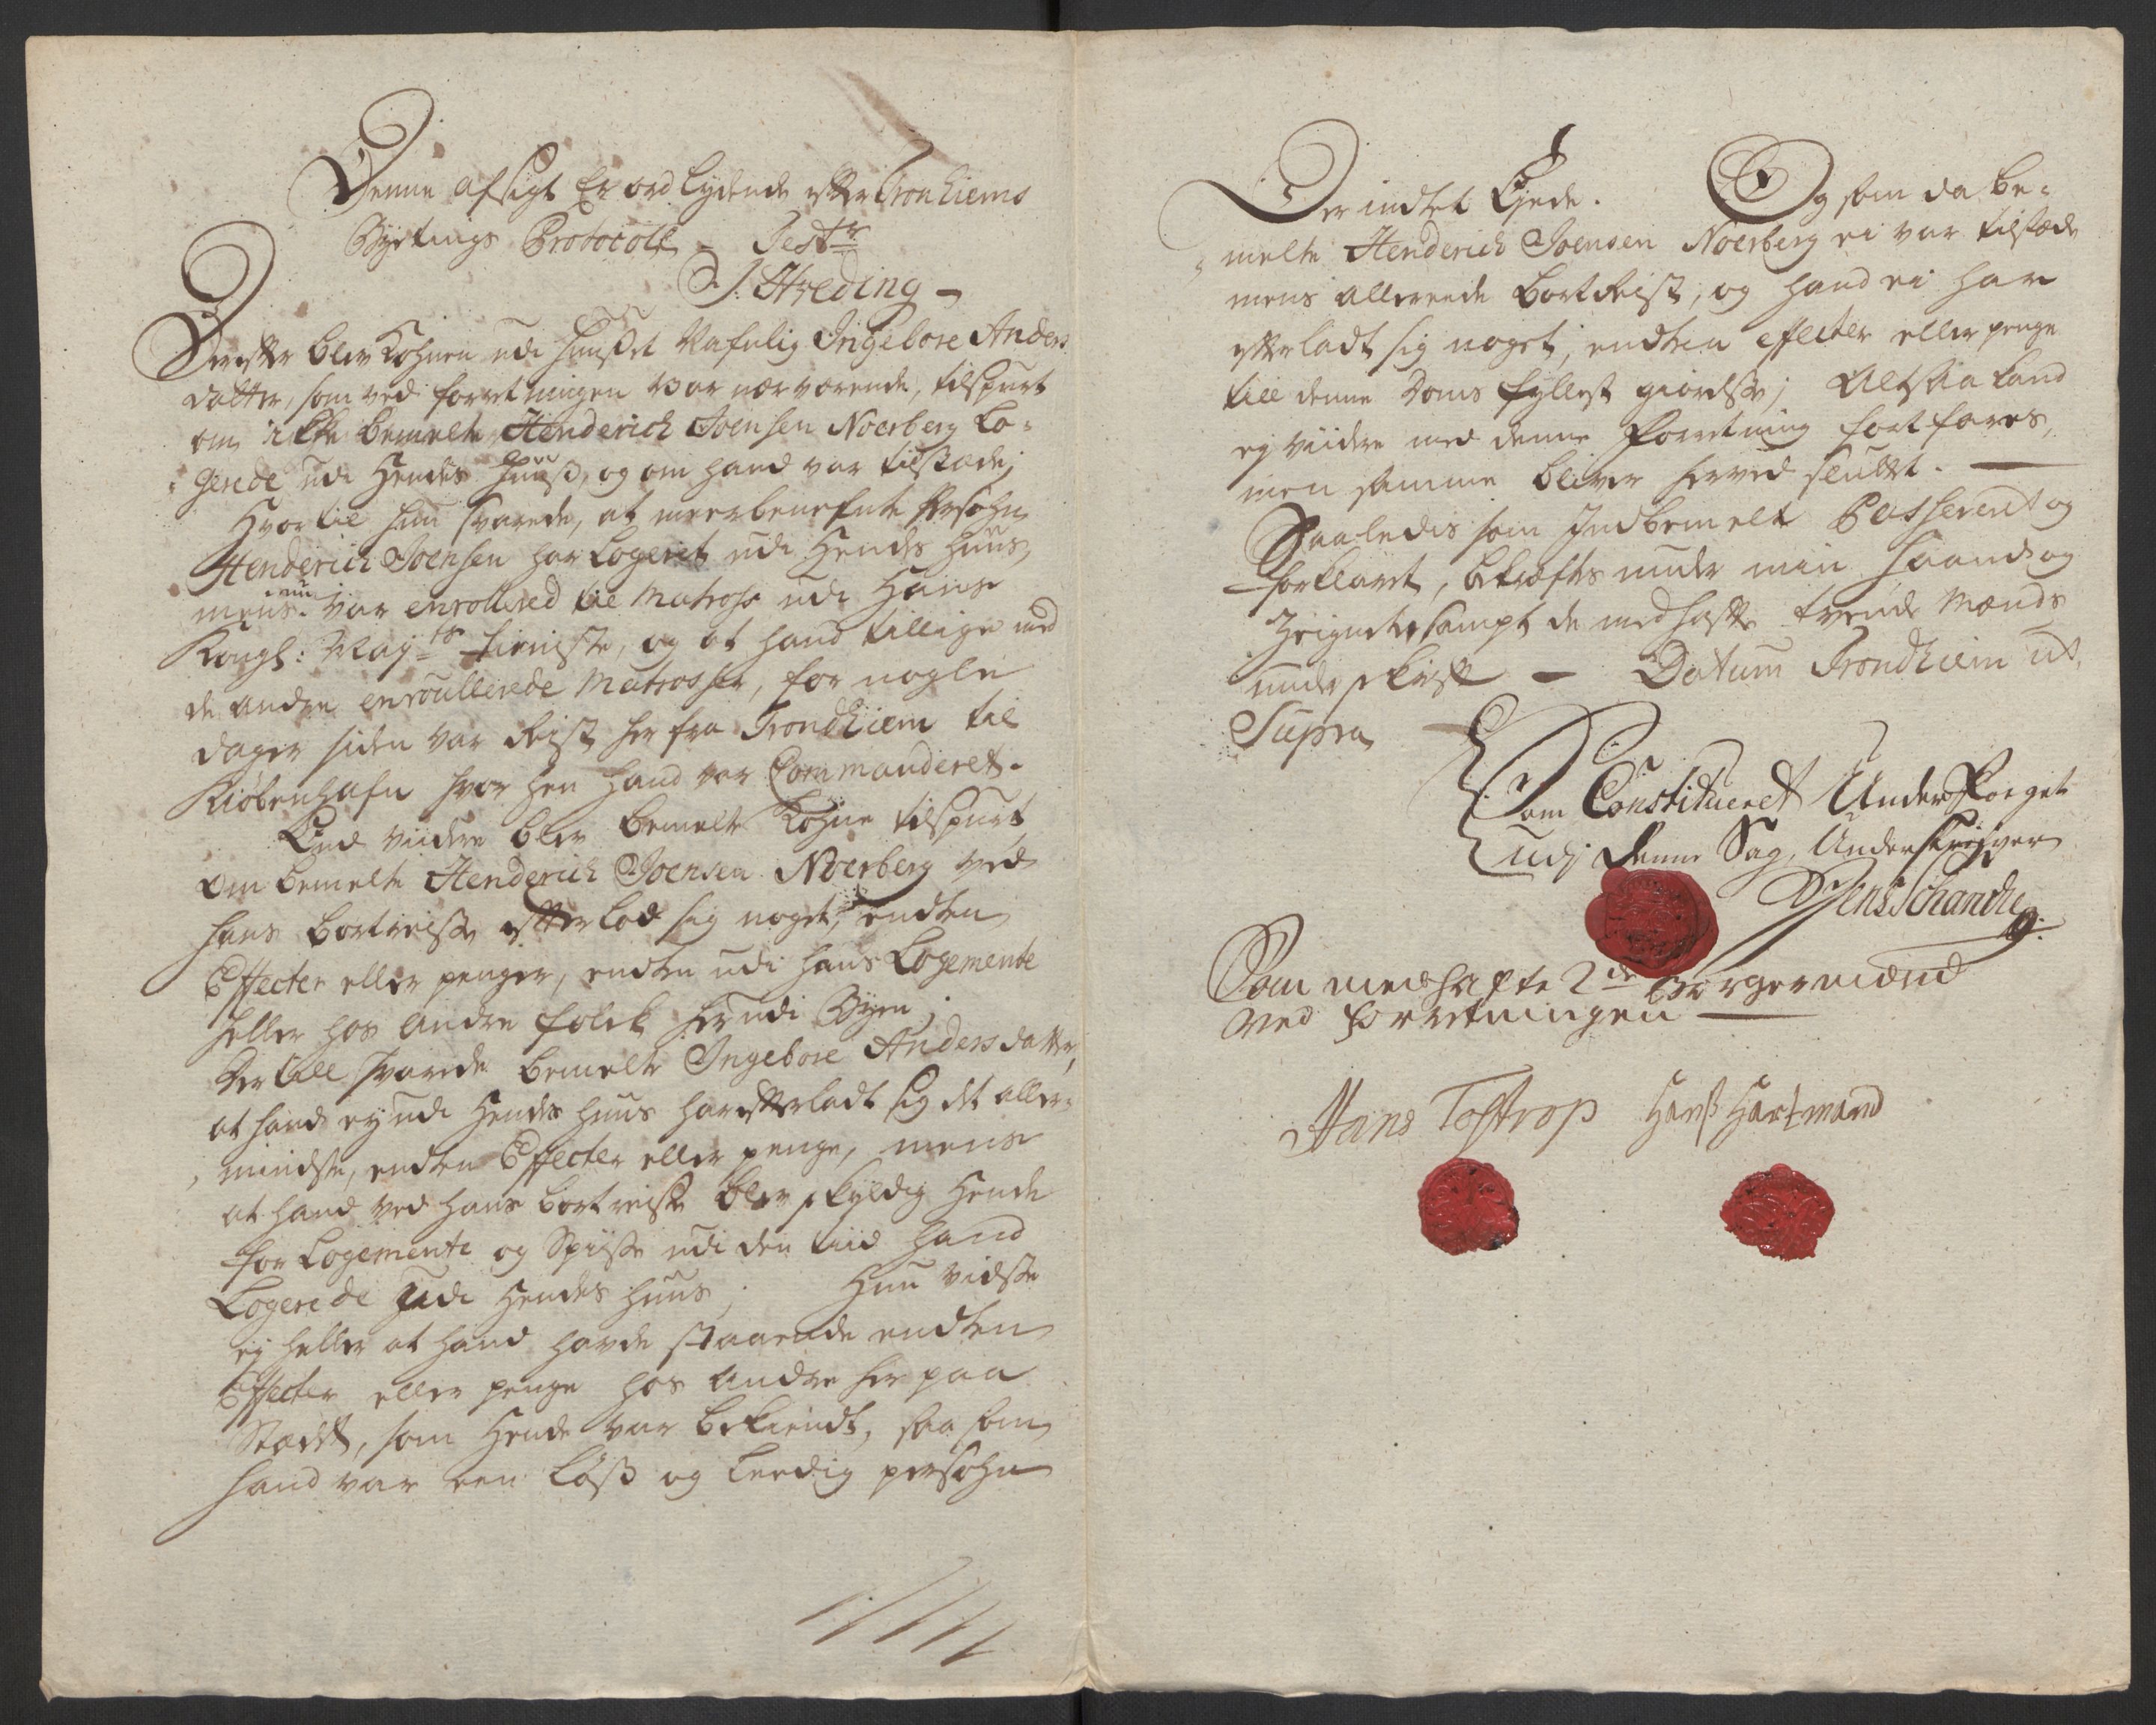 Denne afsigt Er ord lydende efter Tronhiems
Byetings Protocoll - Test:r
J. Hveding -
Derefter blev Kohnen udi Huuset Nafnlig Ingebore Anders
datter, som ved forretningen var nærværende, tilspurt
om icke bemelte Henderich Joensen Noerberg Lo=
=gerede udi Hendes Huuß, og om hand var tilstæde;
Hvortil hun svarede, at meerbenefnte Persohn
Henderich Joensen har Logeret udi Hendes Huus,
mens nu var enrolleed til Matross udi Hans
Kongl: May:ts tieniste, og at hand tillige med
de andre enroullerede Matrosser, for nogle
dager siden var Reist her fra Trondhiem til
Kiøbenhafn hvor hen hand var Commanderet.
End viidere blev bemelte Kohne tilspurt
om bemelte Henderich Joensen Noerberg ved
hans bortreise efterlod sig noget, endten
Effecter eller penger, endten udi hans Logemente
heller hos andre folck her udi Byen;
Der till svarede bemelte Ingebore Andersdatter,
at hand ey udi Hendes huus har efterladt sig det aller=
mindste, endten Effecter eller penge, mens
at hand ved hans bortreise blev skyldig Hende
for Logemente og Spiise udi den tiid hand
Logerede udi Hendes huus; Hun vidste
ej heller at hand havde staaende endten
Effecter eller penge hos andre her paa
Stædet, som Hende var bekiendt, saasom
hand var een løß og leedig persohn
Der indtet Ejede. Og som da be=
=melte Henderich Joensen Noerberg ei var tilstæde
mens allereede bortReist, og hand ei har
efterladt sig noget, endten effecter eller penge
till denne Doms fyllest giørelse; Altsaa kand
ey viidere med denne Forretning fortfares,
men samme bliver herved sluttet.
Saaledis som Indbemelt Passeret og
forklaret, bekræftes under min haand og
Zeignete sampt de med hafte tvende Mænds
underskrift - Datum Trondhiem ut
Supra
Som Constitueret UnderFoeget
udj denne Sag, Underskrifver
Jens Schanche
Som med hafte 2de Borgermænd
ved forretningen
Hans Tostrop Hanß Hartmand